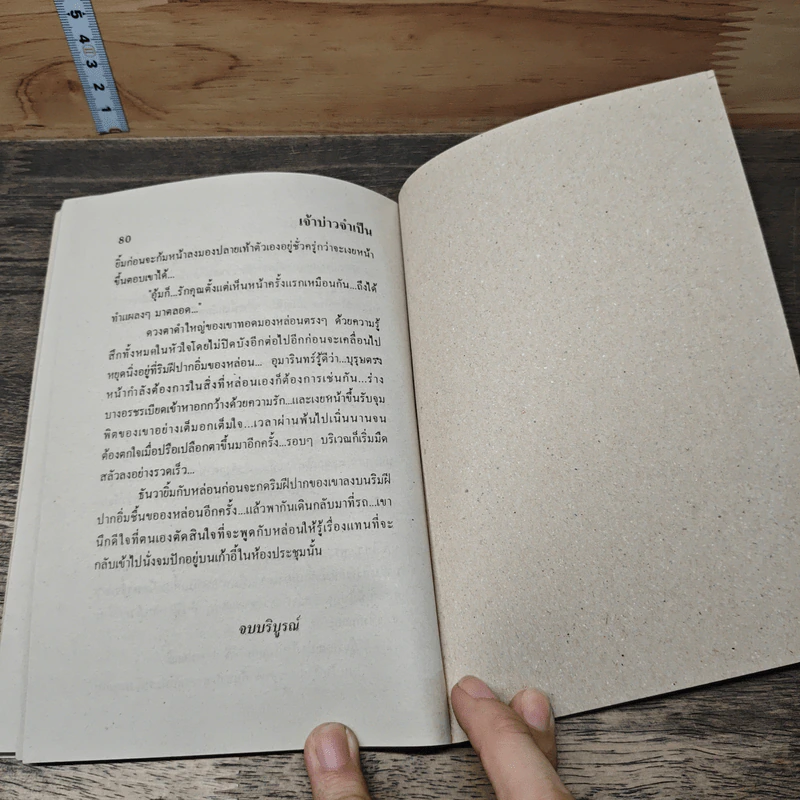 5
4
3
2
1
80
เจ้าบ่าวจำเป็น
ยิ้มก่อนจะก้มหน้าลงมองปลายเท้าตัวเองอยู่ชั่วครู่กว่าจะเงยหน้า
ขึ้นตอบเขาได้...
"อุ้มก็...รักคุณตั้งแต่เห็นหน้าครั้งแรกเหมือนกัน...ถึงได้
ทำแผลงๆ มาตลอด..."
ดวงตาดำใหญ่ของเขาทอดมองหล่อนตรงๆ ด้วยความรู้
สึกทั้งหมดในหัวใจโดยไม่ปิดบังอีกต่อไปอีกก่อนจะเคลื่อนไป
หยุดนิ่งอยู่ที่ริมฝีปากอิ่มของหล่อน... อุมารินทร์รู้ดีว่า...บุรุษตรง
หน้ากำลังต้องการในสิ่งที่หล่อนเองก็ต้องการเช่นกัน...ร่าง
บางอรชรเบียดเข้าหาอกกว้างด้วยความรัก...และเงยหน้าขึ้นรับจุม
พิตของเขาอย่างเต็มอกเต็มใจ...เวลาผ่านพ้นไปเนิ่นนานจน
ต้องตกใจเมื่อปรือเปลือกตาขึ้นมาอีกครั้ง...รอบๆ บริเวณก็เริ่มมืด
สลัวลงอย่างรวดเร็ว...
ธันวายิ้มกับหล่อนก่อนจะกดริมฝีปากของเขาลงบนริมฝี
ปากอิ่มชื้นของงหล่อนอีกครั้ง...แล้วพากันเดินกลับมาที่รถ...เขา
นึกดีใจที่ตนเองตัดสินใจที่จะพูดกับหล่อนให้รู้เรื่องแทนที่จะ
กลับเข้าไปนั่งจมปักอยู่บนเก้าอี้ในห้องประชุมนั้น
จบบริบูรณ์